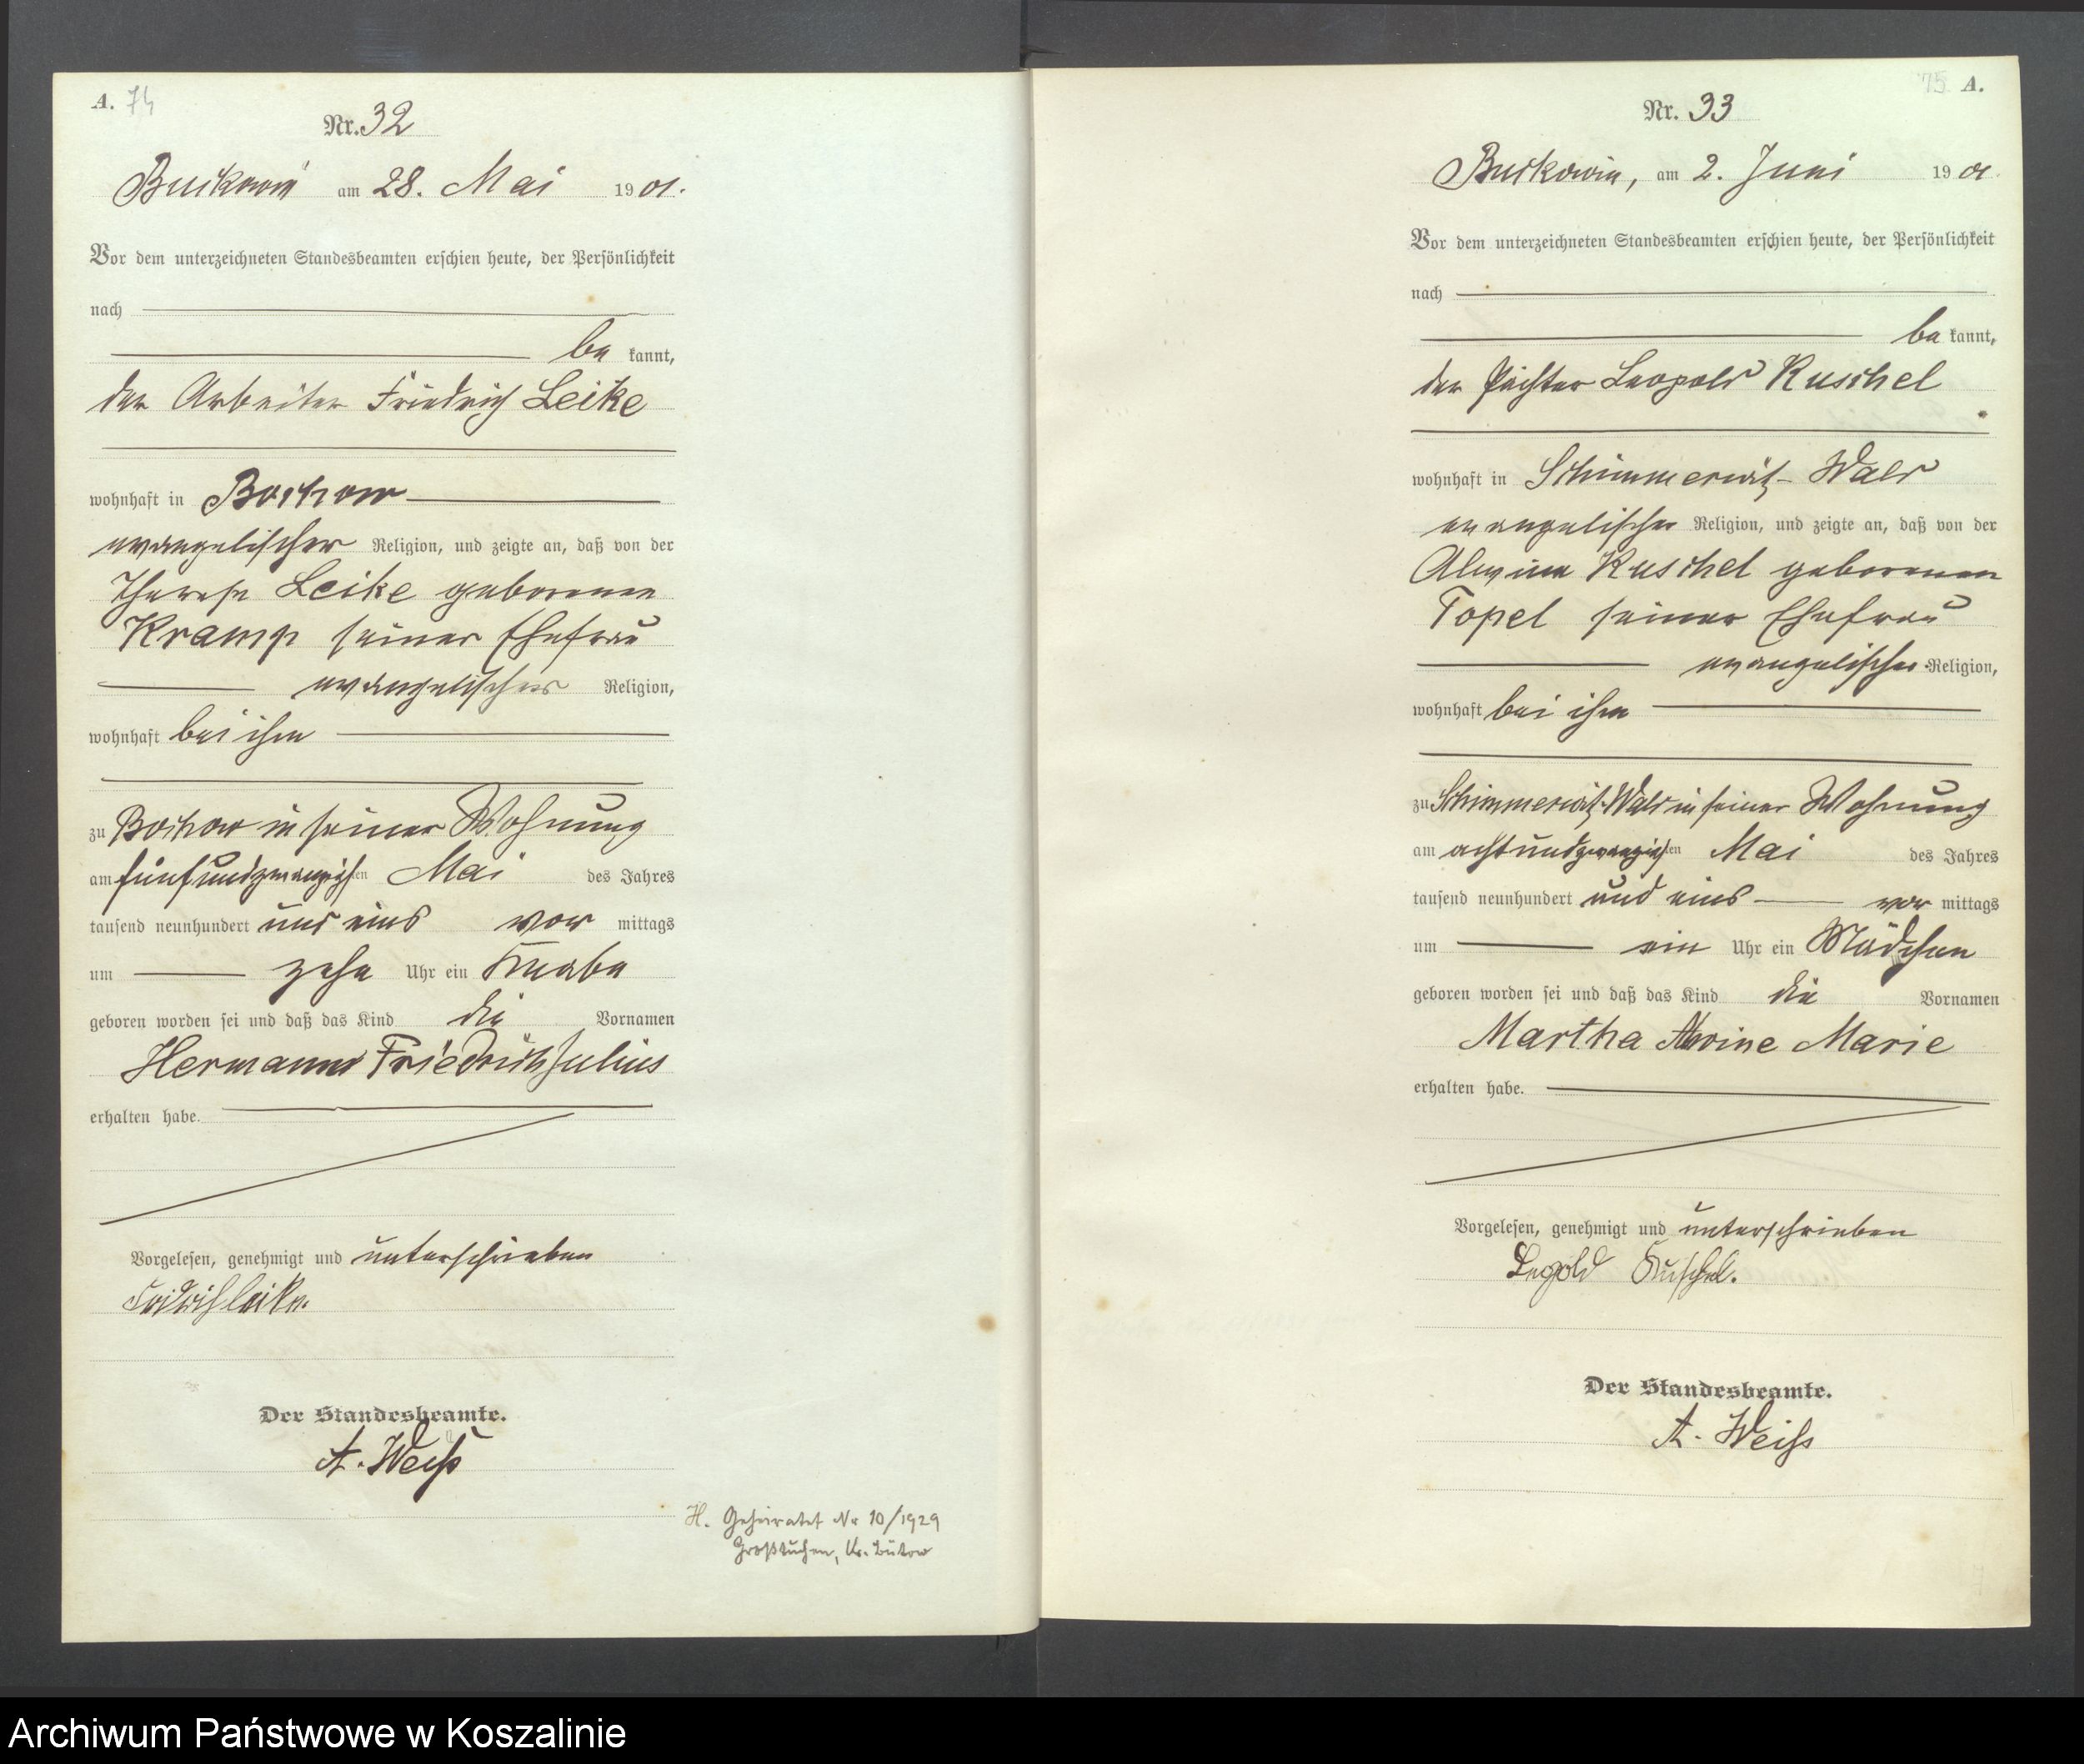 A. 74
Nr. 32
Buckowin am 28. Mai 1901.
Vor dem unterzeichneten Standesbeamten erschien heute, der Persönlichkeit
nach
be kannt,
der Arbeiter Friedrich Leike
wohnhaft in Bochow
evangelischer Religion, und zeigte an, daß von der
Therese Leike geborenen
Kramp seiner Ehefrau
evangelischer Religion,
wohnhaft bei ihm
zu Bochow in seiner Wohnung
am fünfundzwanzigsten Mai des Jahres
tausend neunhundert und eins vor mittags
um zehn Uhr ein Knabe
geboren worden sei und daß das Kind die Vornamen
Hermann Friedrich Julius
erhalten habe.
Vorgelesen, genehmigt und unterschrieben
Fridrich Leike.
Der Standesbeamte.
A. Weiß
H. Geheiratet Nr 10/1929
Großtuchen, Kr. Bütow
75 A.
Nr. 33
Buckowin, am 2. Juni 1901.
Vor dem unterzeichneten Standesbeamten erschien heute, der Persönlichkeit
nach
be kannt,
der Pächter Leopold Kuschel
wohnhaft in Schimmerwitz-Wald
evangelischer Religion, und zeigte an, daß von der
Kuschel geborenen
Topel seiner Ehefrau
evangelischer Religion,
wohnhaft bei ihm
zu Schimmerwitz-Wald in seiner Wohnung
am achtundzwanzigsten Mai des Jahres
tausend neunhundert und eins vor mittags
um ein Uhr ein Mädchen
geboren worden sei und daß das Kind die Vornamen
Martha Marie
erhalten habe.
Vorgelesen, genehmigt und unterschrieben
Leopold Kuschel.
Der Standesbeamte.
A. Weiß
Archiwum Państwowe w Koszalinie